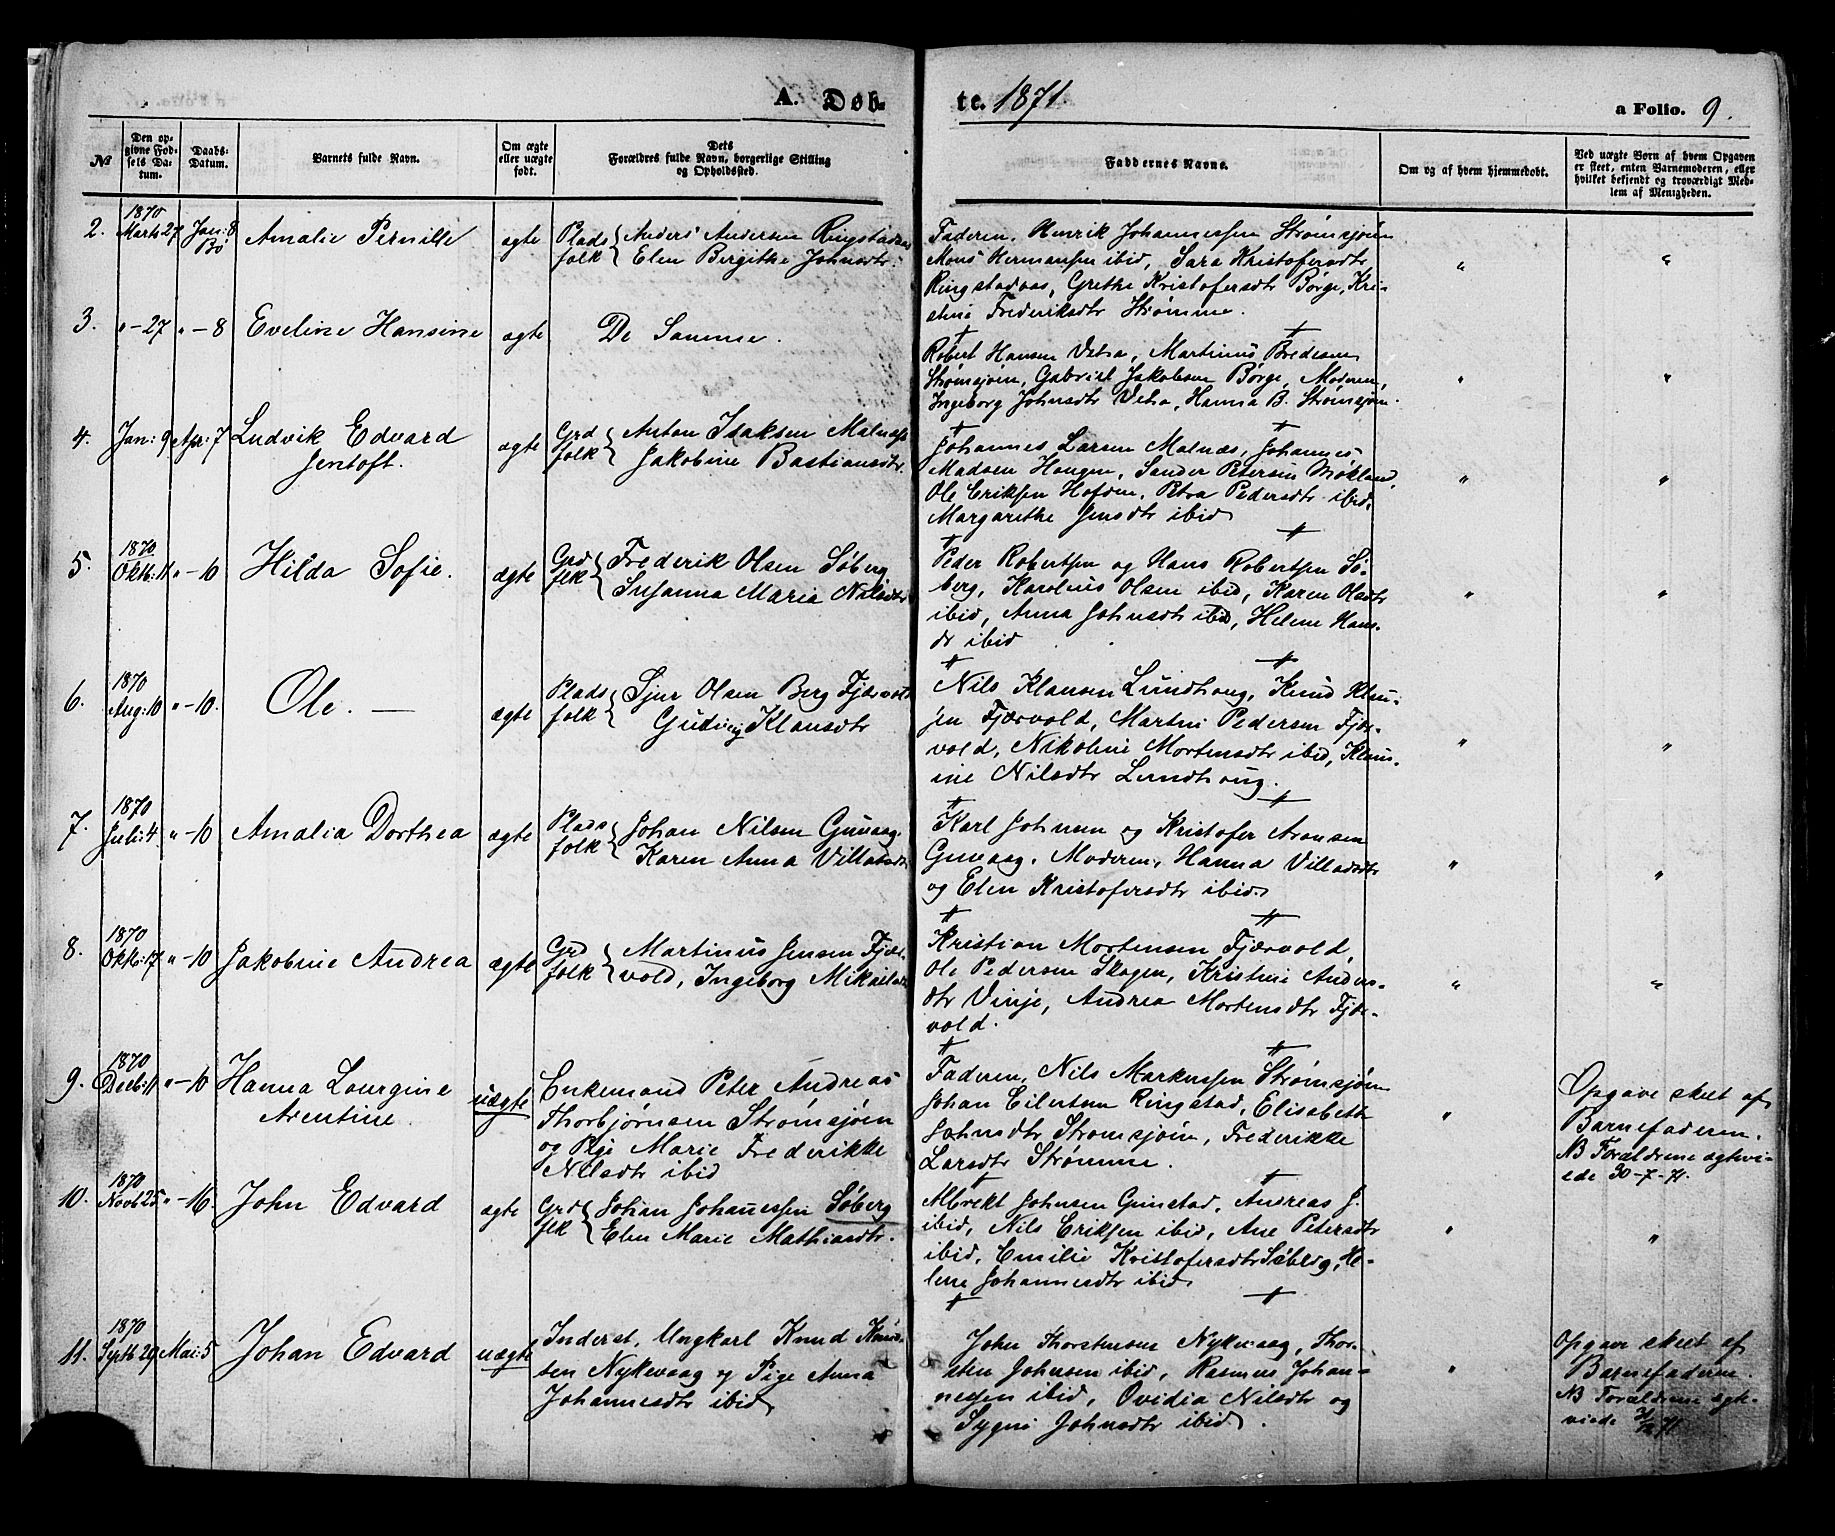 A. Døb-
te. 1871.
a Folio. 9.
№
Den op-
givne Fød-
sels Da-
tum.
Daabs-
Datum.
Barnets fulde Navn.
Om ægte
eller uægte
født.
Dets
Forældres fulde Navn, borgerlige Stilling
og Opholdssted.
Faddernes Navne.
Om og af hvem hjemmedøbt.
Ved uægte Børn af hvem Opgaven
er skeet, enten Barnemoderen, eller
hvilket bekjendt og troværdigt Med-
lem af Menigheden.
2. 1870 Marts 27 Jan: 8 Bø
Amalie Pernille
ægte
Plads
folk
Anders Andersen Ringstadaas
Elen Birgithe Johnsdtr.
Faderen, Henrik Johannessen Strømsjøen
Mons Hermansen ibid, Sara Kristofersdtr
Ringstadaas, Grethe Kristofersdtr Børge, Kri-
stine Frederiksdtr Strømme.
" "
3. " - 27 " - 8
Eveline Hansine
ægte
De Samme.
Robert Hansen Vetra, Martinus Bredesen
Strømsjøen, Gabriel Jakobsen Børge, Moderen,
Ingeborg Johnsdtr Vetra, Hanna B. Strømsjøen.
" "
4. Jan: 9 Apr: 7
Ludvik Edvard
Jentoft.
ægte
Grd
folk
Anton Isaksen Malnæs
Jakobine Bastiansdtr.
Johannes Larsen Malnæs, Johannes
Madsen Haugen, Sander Petersen Møkland,
Ole Eriksen Hofden, Petra Pedersdtr ibid,
Margarethe Jensdtr ibid
" "
5. 1870 Oktb: 11 " - 10
Hilda Sofie.
ægte
Grd
flk
Frederik Olsen Søberg
Susanna Maria Nilsdtr
Peder Robertsen og Hans Robertsen Sø-
berg, Karolius Olsen ibid, Karen Olsdtr
ibid, Anna Johnsdtr ibid, Helene Hans-
dr ibid
" "
6. 1870 Aug: 10 " - 10.
Ole. —
ægte
Plads
folk
Sjur Olsen Berg Fjærvold
Gudvig Klausdtr
Nils Klausen Lundhaug, Knud Klau-
sen Fjærvold, Martin Pedersen Fjær-
vold, Nikoline Mortensdtr ibid, Klau-
sine Nilsdtr Lundhaug.
" "
7. 1870 Juli: 4 " - 10
Amalia Dorthea
ægte
Plads
folk
Johan Nilsen Guvaag
Karen Anna Villadsdtr
Karl Johnsen og Kristofer Aronsen
Guvaag, Moderen, Hanna Villadsdtr
og Elen Kristofersdtr ibid
" "
8. 1870 Oktb: 17 " - 10
Jakobine Andrea
ægte
Grd
folk
Martinus Jensen Fjær-
vold, Ingeborg Mikkelsdtr
Kristian Mortensen Fjærvold,
Ole Pedersen Skagen, Kristine Anders-
dtr Vinje, Andrea Mortensdtr Fjær-
vold.
" "
9. 1870 Decb: 11 " - 10
Hanna Lourgine
Arentine.
uægte
Enkemand Peter Andreas
Thorbjørnsen Strømsjøen
og Pige Marie Frederikke
Nilsdtr ibid
Faderen, Nils Markussen Strømsjøen
Johan Eilertsen Ringstad, Elisabeth
Johnsdtr Strømsjøen, Frederikke
Larsdtr Strømme.
"
Opgave skeet af
Barnefaderen.
NB Forældrene ægtevi-
ede 30-7-71.
10. 1870 Novb 25 " - 16.
John Edvard
ægte
Grd
flk
Johan Johanessen Søberg
Elen Marie Mathiasdtr.
Albrekt Johnsen Grimstad, Andreas J.
ibid, Nils Eriksen ibid, Ane Petersdtr
ibid, Emilie Kristofersdtr Søberg, He-
lene Johannesdtr ibid
" "
11. 1870 Septb 29 Mai: 5
Johan Edvard
uægte
Inderst. Ungkarl Knud Knud-
sen Nykvaag og Pige Anna
Johannesdtr ibid
John Thorstensen Nykvaag, Thor-
sten Johnsen ibid, Rasmus Johan-
nesen ibid, Ovidia Nilsdtr og
Sygni Johnsdtr ibid.
"
Opgave skeet af
Barnefaderen.
NB Forældrene ægt-
viede 71.